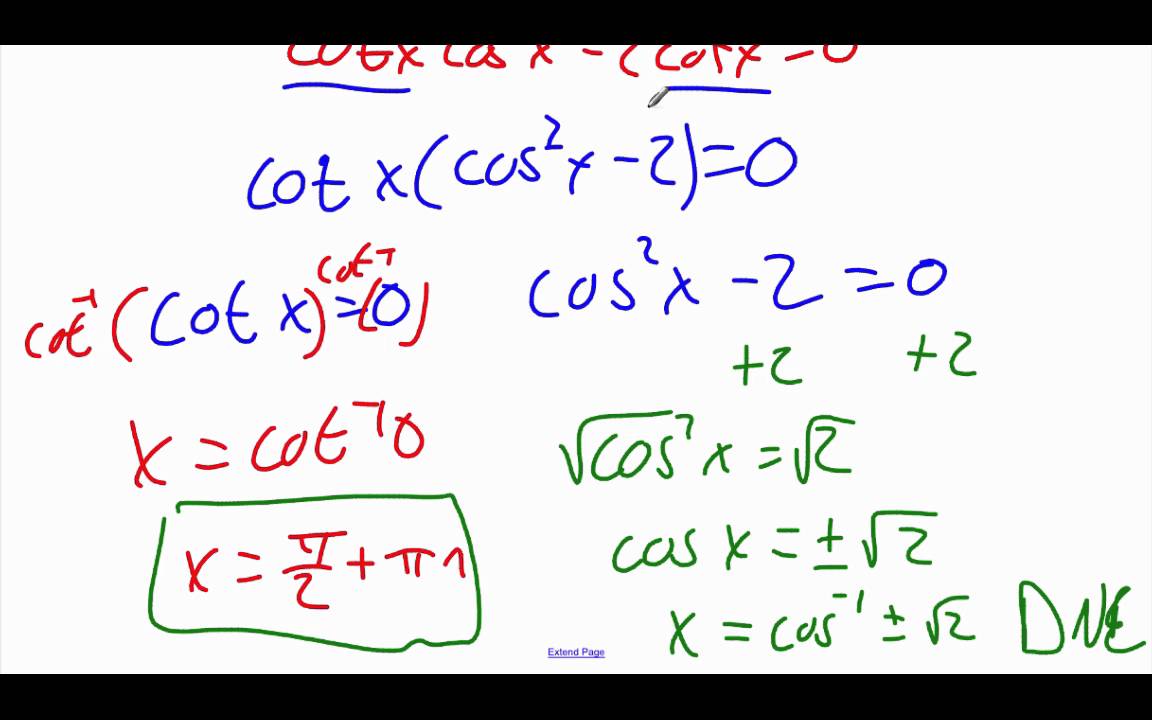 cot x cos² x - 2 cot x = 0
cot x (cos² x - 2) = 0
cot⁻¹ (cot x) = cot⁻¹ (0)
cos² x - 2 = 0
+2 +2
x = cot⁻¹ 0
√cos² x = √2
cos x = ± √2
x = π/2 + πn
x = cos⁻¹ ± √2 DNE
Extend Page